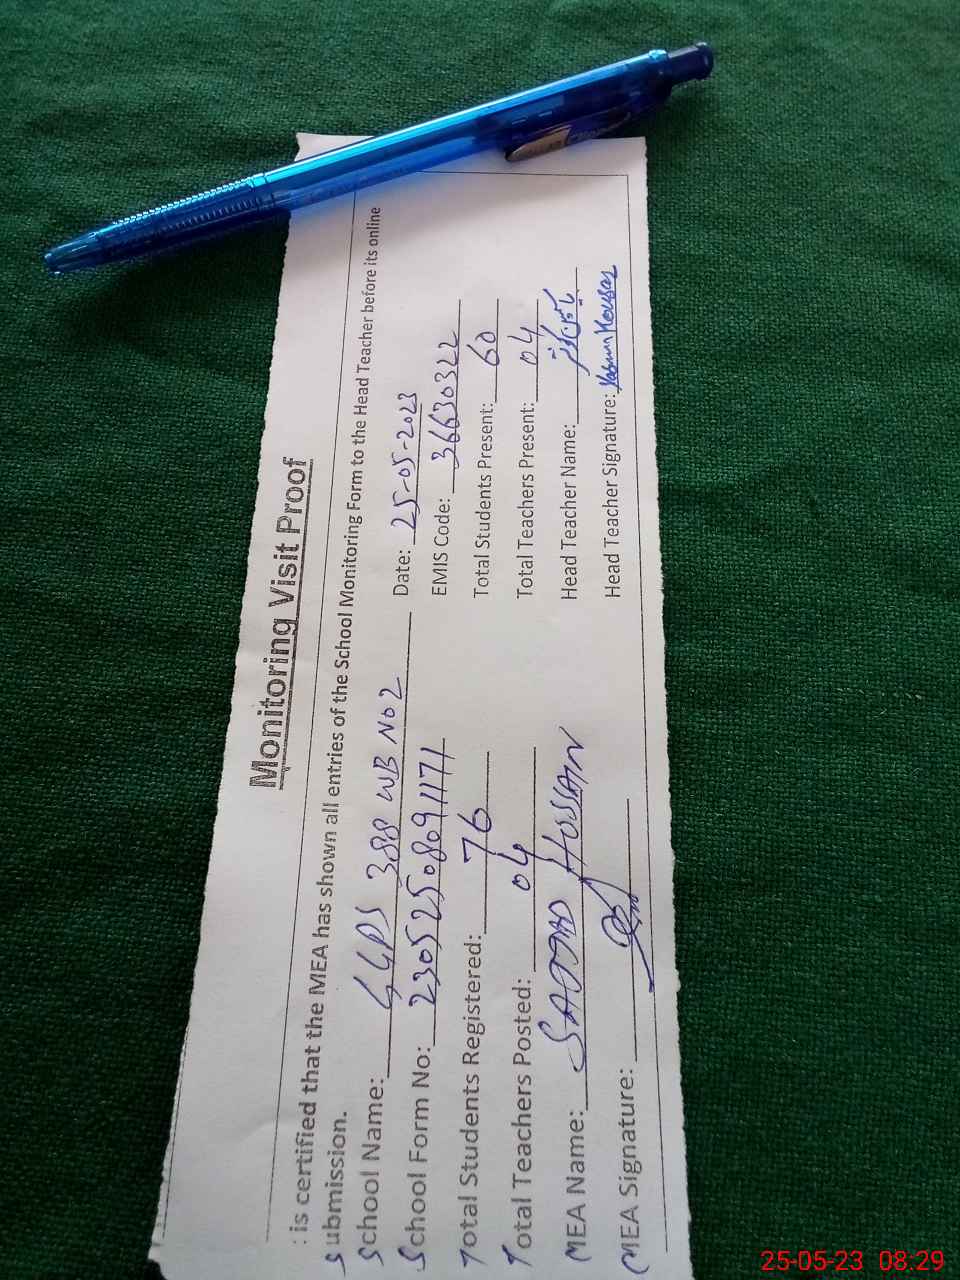 Monitoring Visit Proof
: is certified that the MEA has shown all entries of the School Monitoring Form to the Head Teacher before its online
submission.
School Name: GGPS 388 WB NO2 Date: 25-05-2023
School Form No: 23052508091171 EMIS Code: 36630322
Total Students Registered: 76 Total Students Present: 60
Total Teachers Posted: 04 Total Teachers Present: 04
MEA Name: SAJJAD HOSSAIN Head Teacher Name:
MEA Signature: Head Teacher Signature: Yasmin Kousar
25-05-23 08:29